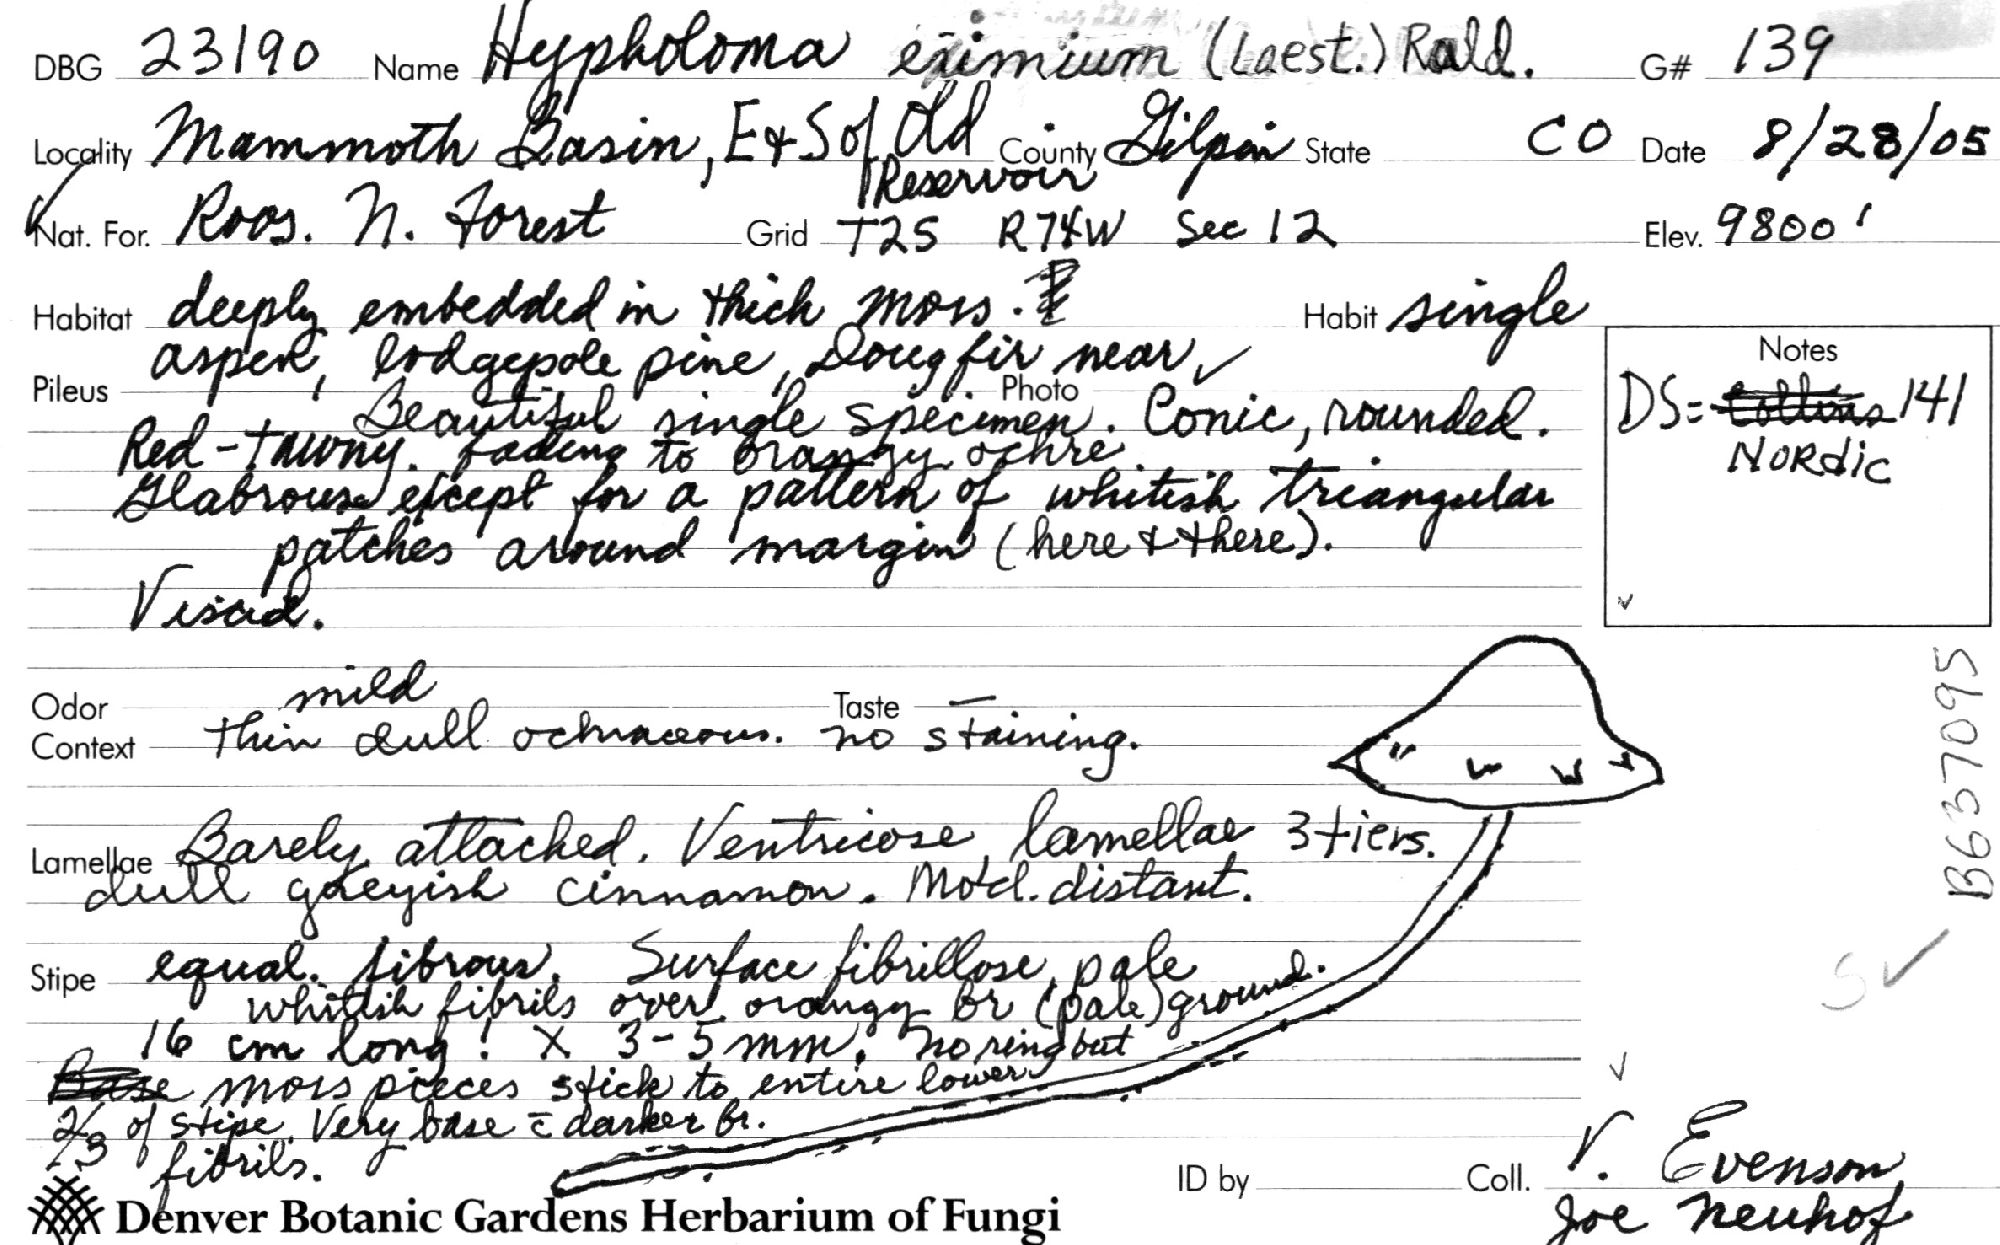 DBG 23190 Name Hypholoma eximium (Laest.) Rald. G# 139
Locality Mammoth Basin, E & S of Old Reservoir County Gilpin State CO Date 8/28/05
Nat. For. Roos. N. Forest Grid T2S R74W Sec 12 Elev. 9800'
Habitat deeply embedded in thick moss. Habit single
aspen, lodgepole pine, Doug fir near
Pileus Photo ✓
Beautiful single specimen. Conic, rounded.
Red-tawny. fading to orangy ochre
Glabrous except for a pattern of whitish triangular
patches around margin (here & there).
Viscid.
Notes
DS= Collins 141
Nordic
Odor mild Taste —
Context thin dull ochraceous. no staining.
Lamellae Barely attached. Ventricose, lamellae 3 tiers.
dull greyish cinnamon. Mod. distant.
Stipe equal. fibrous. Surface fibrillose, pale
whitish fibrils over orangy br (pale) ground.
16 cm long! X 3-5 mm. No ring but
Base moss pieces stick to entire lower
2/3 of stipe. Very base c̄ darker br.
fibrils.
B637095
S ✓
ID by Coll. V. Evenson
Joe Neuhof
Denver Botanic Gardens Herbarium of Fungi